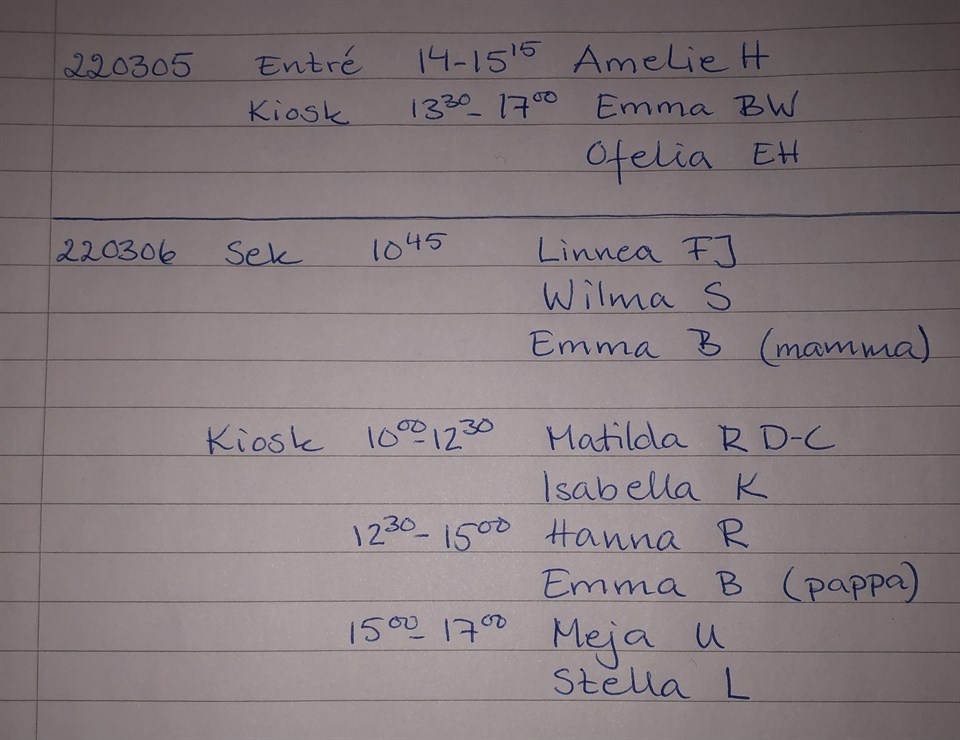 220305 Entré 14-15¹⁵ Amelie H
Kiosk 13³⁰-17⁰⁰ Emma BW
Ofelia EH
220306 Sek 10⁴⁵ Linnea FJ
Wilma S
Emma B (mamma)
Kiosk 10⁰⁰-12³⁰ Matilda R D-C
Isabella K
12³⁰-15⁰⁰ Hanna R
Emma B (pappa)
15⁰⁰-17⁰⁰ Meja U
Stella L